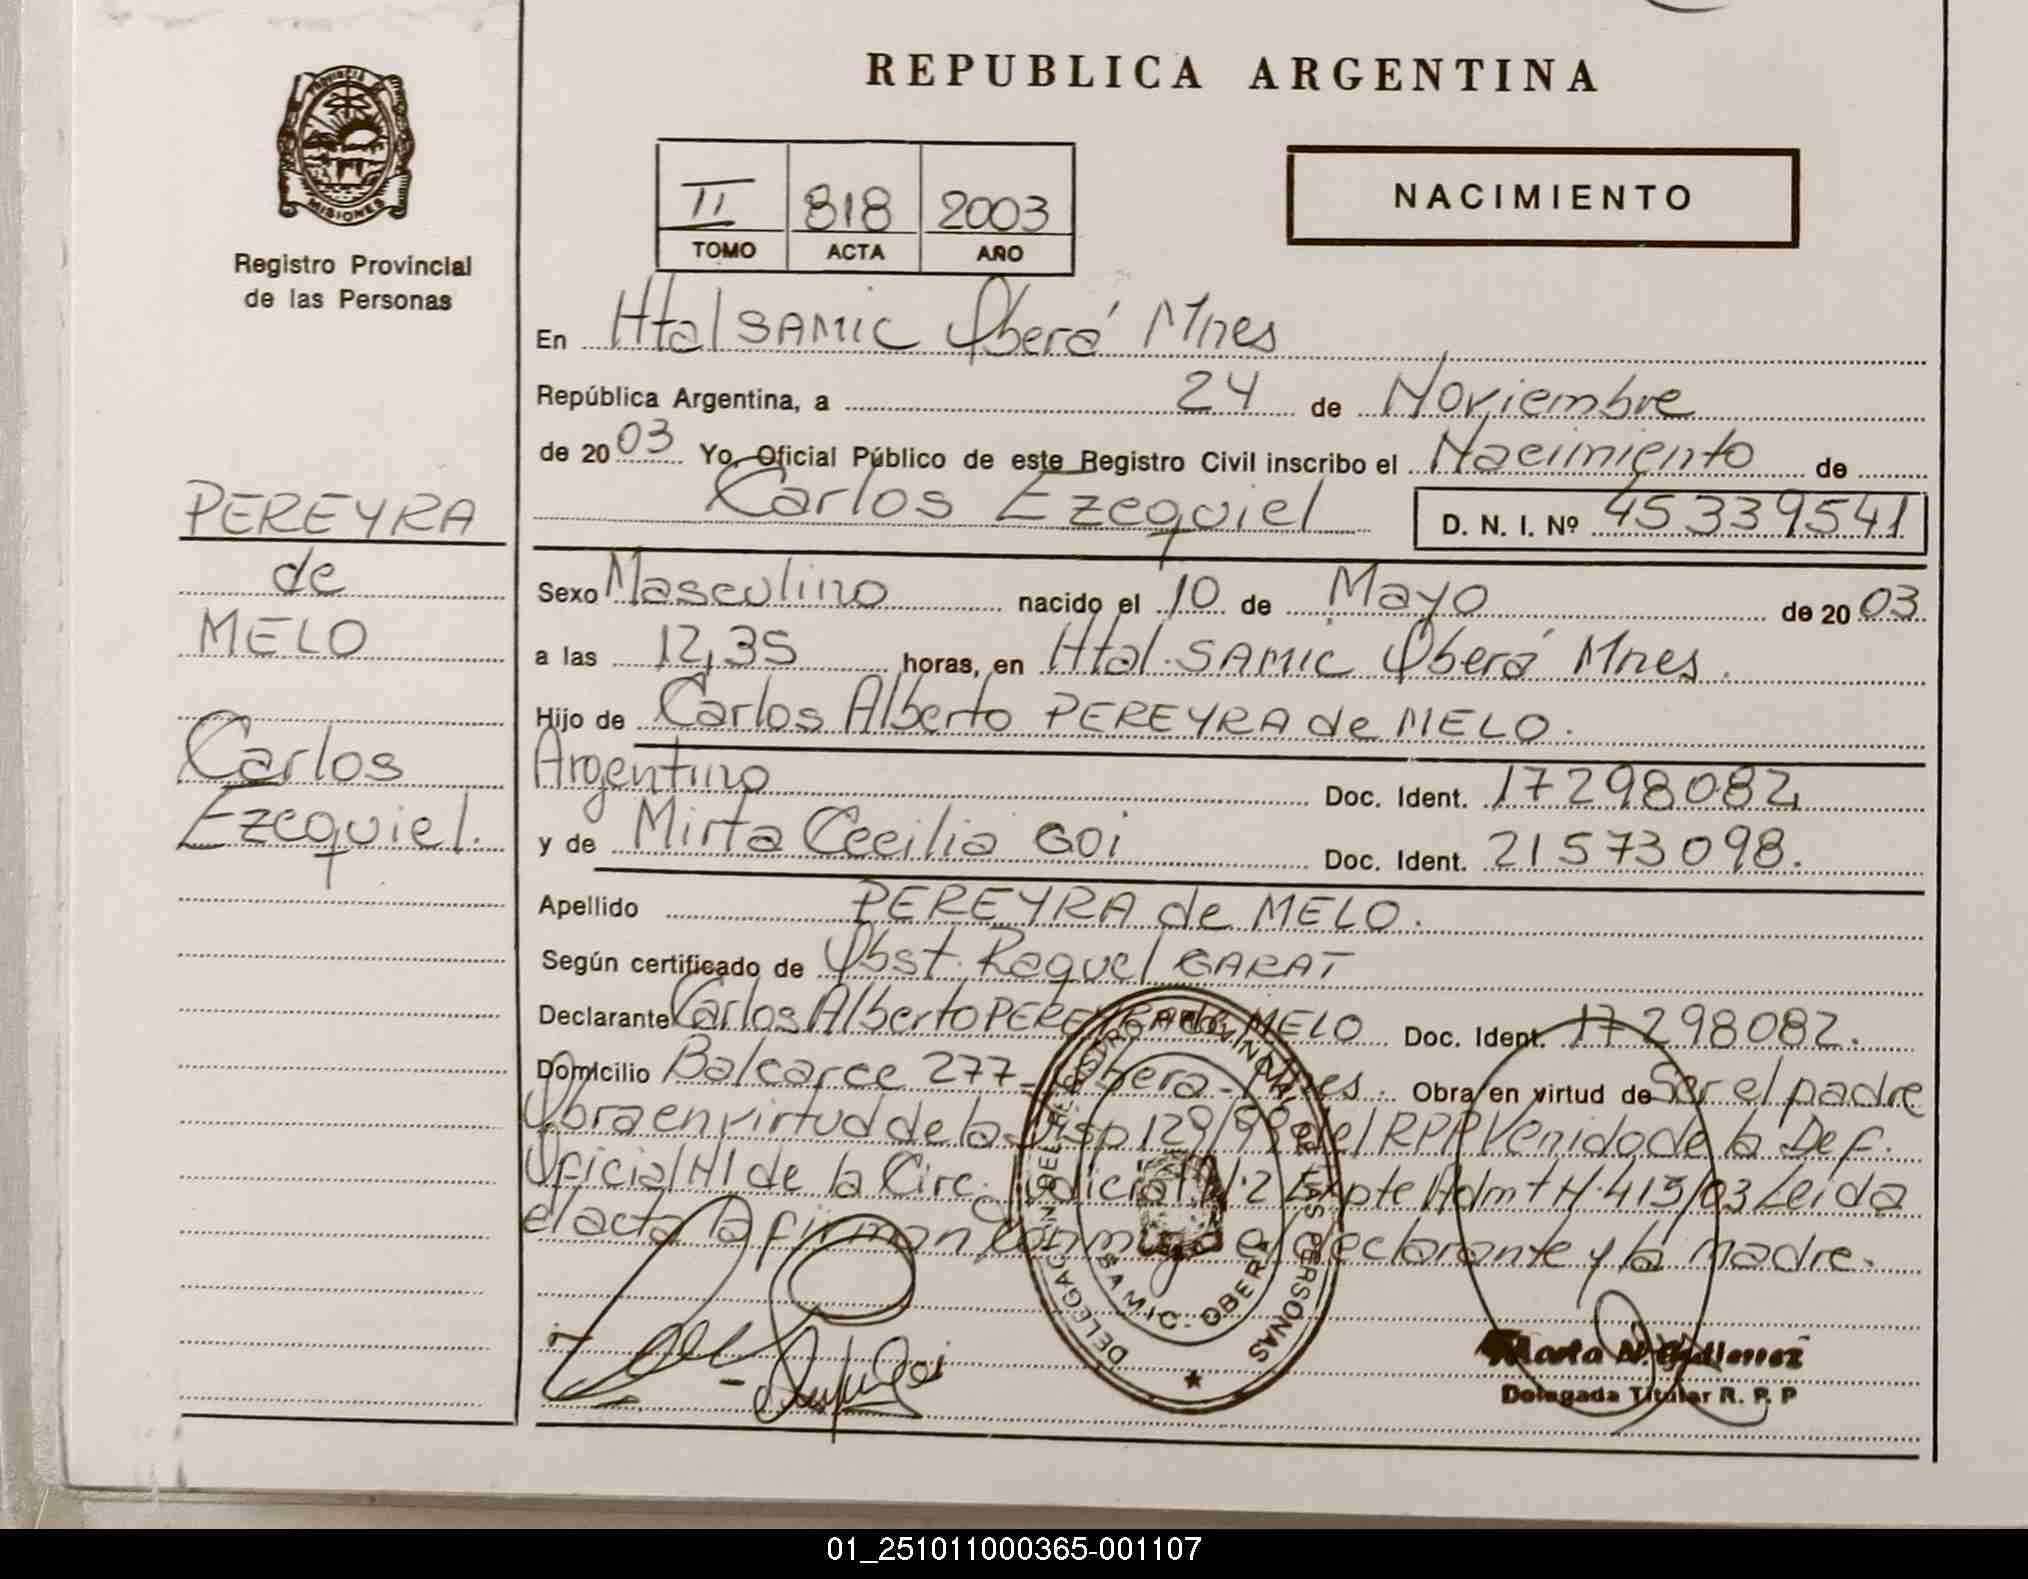 REPUBLICA ARGENTINA
PROVINCIA DE
MISIONES
Registro Provincial
de las Personas
II 818 2003
TOMO ACTA AÑO
NACIMIENTO
En Htal SAMIC Oberá Mnes
República Argentina, a 24 de Noviembre
de 2003 Yo, Oficial Público de este Registro Civil inscribo el Nacimiento de
Carlos Ezequiel D. N. I. Nº 45339541
PEREYRA
de
MELO
Carlos
Ezequiel.
Sexo Masculino nacido el 10 de Mayo de 2003
a las 12,35 horas, en Htal. SAMIC Oberá Mnes.
Hijo de Carlos Alberto PEREYRA de MELO.
Argentino Doc. Ident. 17298082
y de Mirta Cecilia GOI Doc. Ident. 21573098.
Apellido PEREYRA de MELO.
Según certificado de Obst. Raquel GARAT
Declarante Carlos Alberto PEREYRA de MELO Doc. Ident. 17298082.
Domicilio Balcarce 277 - Obera - Mnes. Obra en virtud de Ser el padre
Obra en virtud de la Disp 129/99 del RPP Venido de la Def.
Oficial N1 de la Circ. Judicial N.2 Expte Admt N.413/03 Leida
el acta la firman conmigo el declarante y la madre.
DELEGACION DEL REGISTRO PROVINCIAL DE LAS PERSONAS
SAMIC. OBERA
Delegada Titular R. P. P
01_251011000365-001107